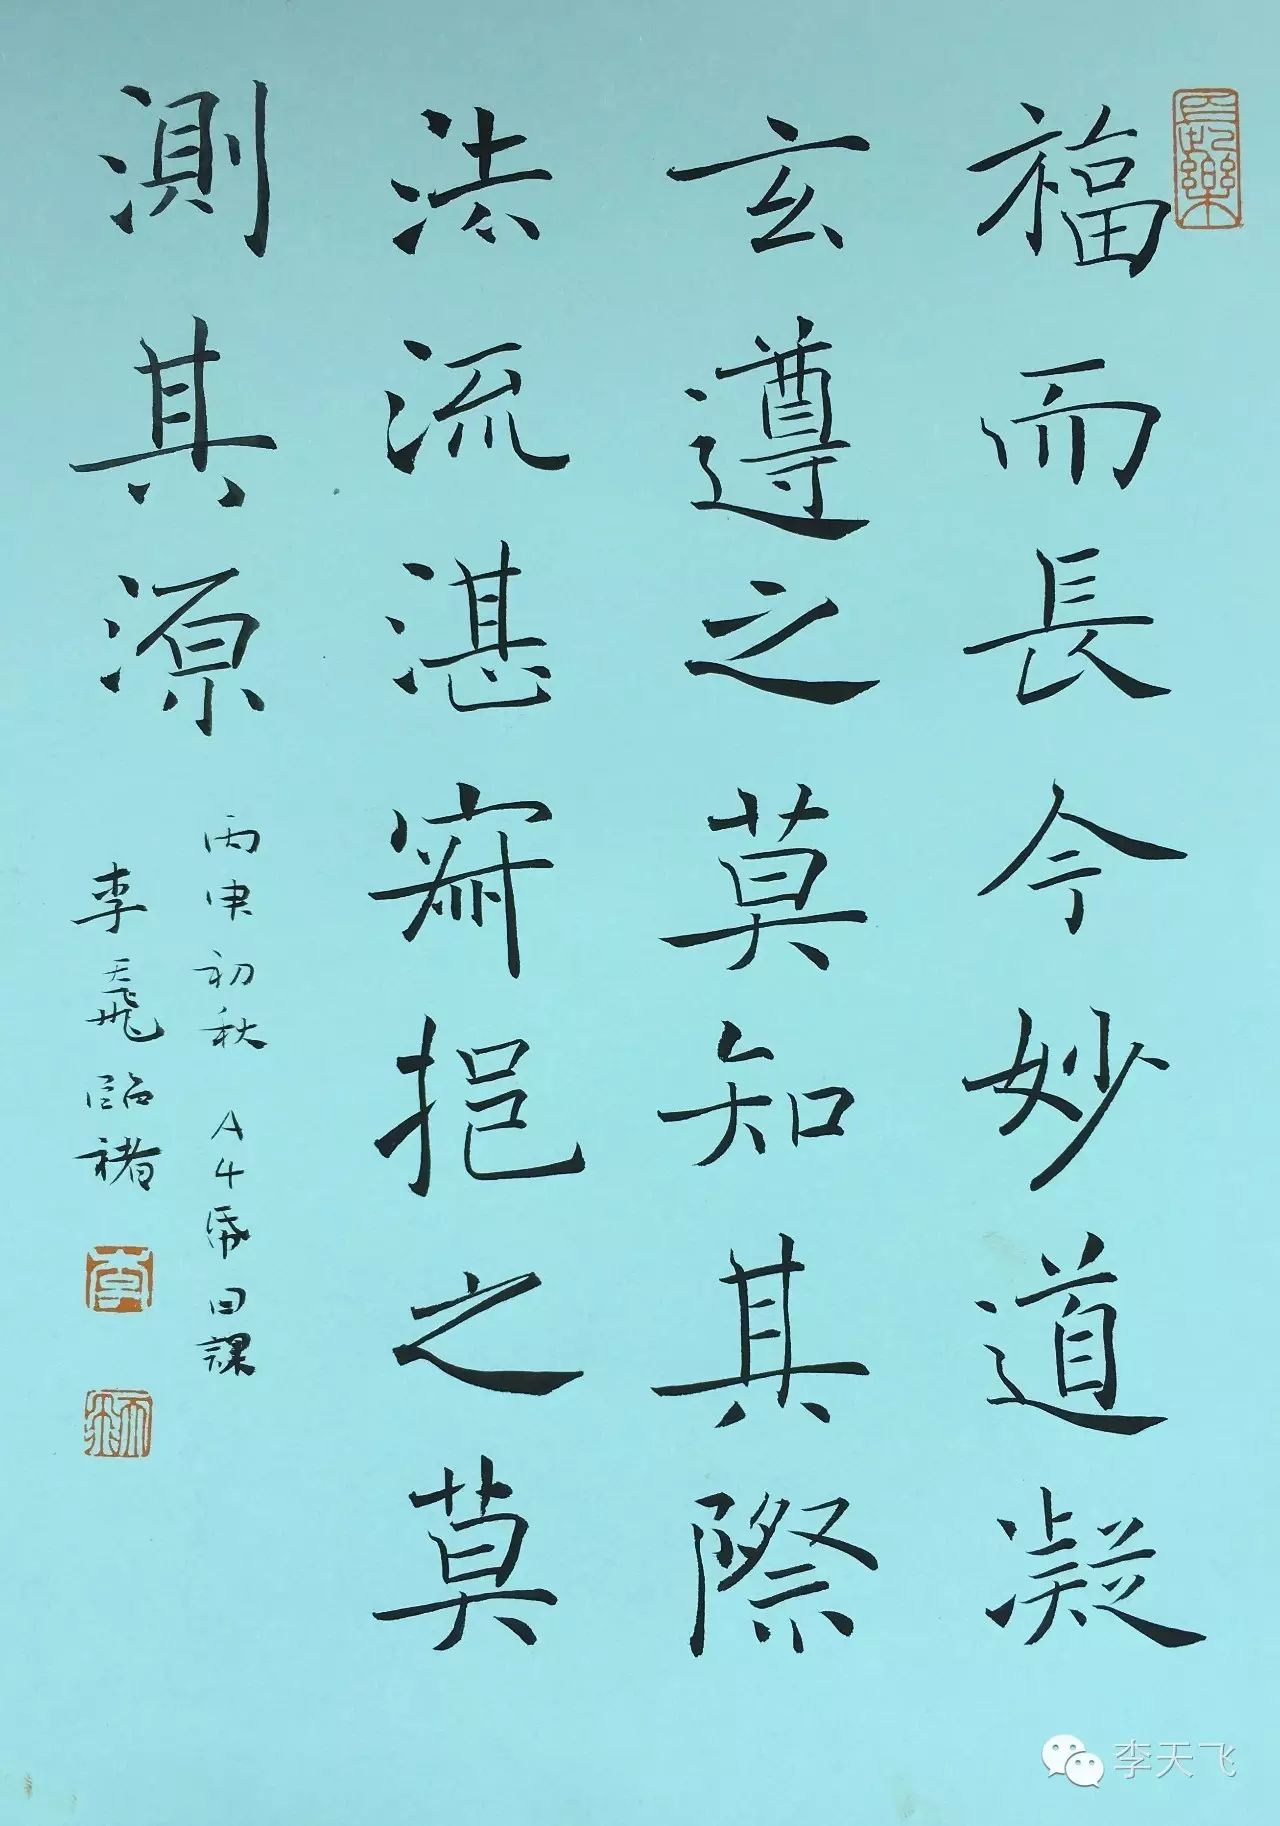 福而長今妙道凝
玄遵之莫知其際
法流湛寂挹之莫
測其源
丙申初秋 A4纸日課
李天飛臨褚
長樂
李
天飛
李天飞